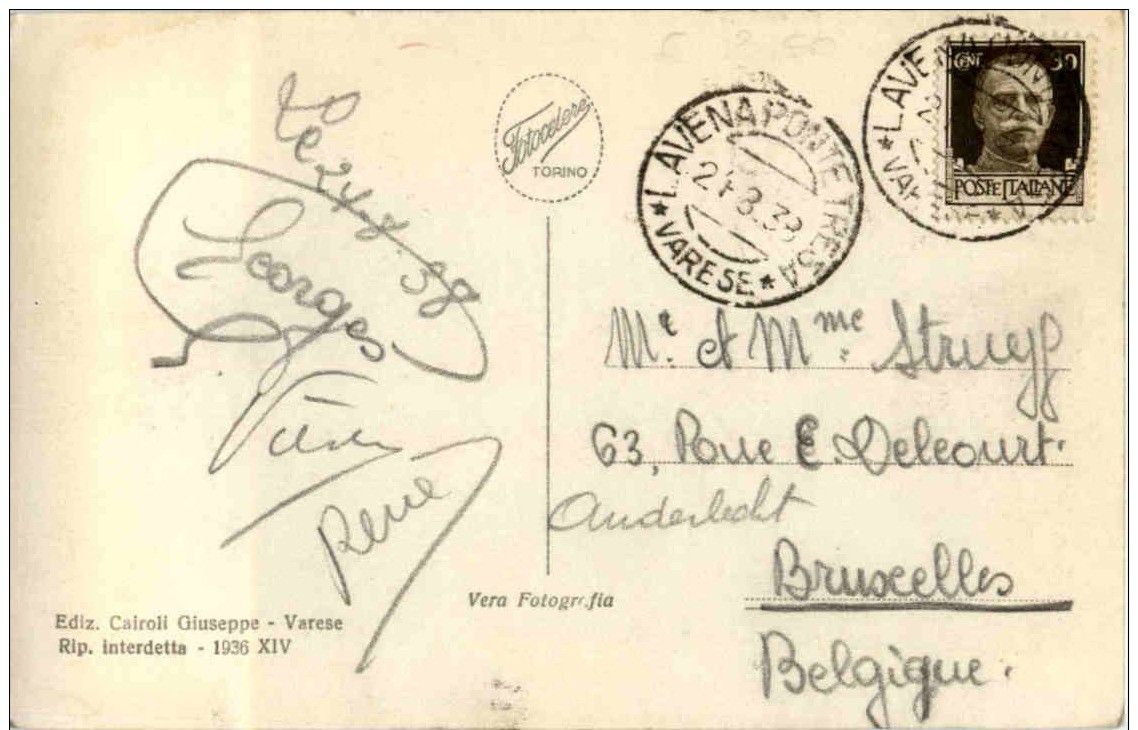 Le 24.8.38
Georges
René
Fotocelere
TORINO
Ediz. Cairoli Giuseppe - Varese
Rip. interdetta - 1936 XIV
Vera Fotografia
LAVENA PONTE TRESA
24.8.38
* VARESE *
CENT 30
POSTE ITALIANE
Mr. et Mme. Struyf
63, Rue E. Delcourt.
Anderlecht
Bruxelles
Belgique.